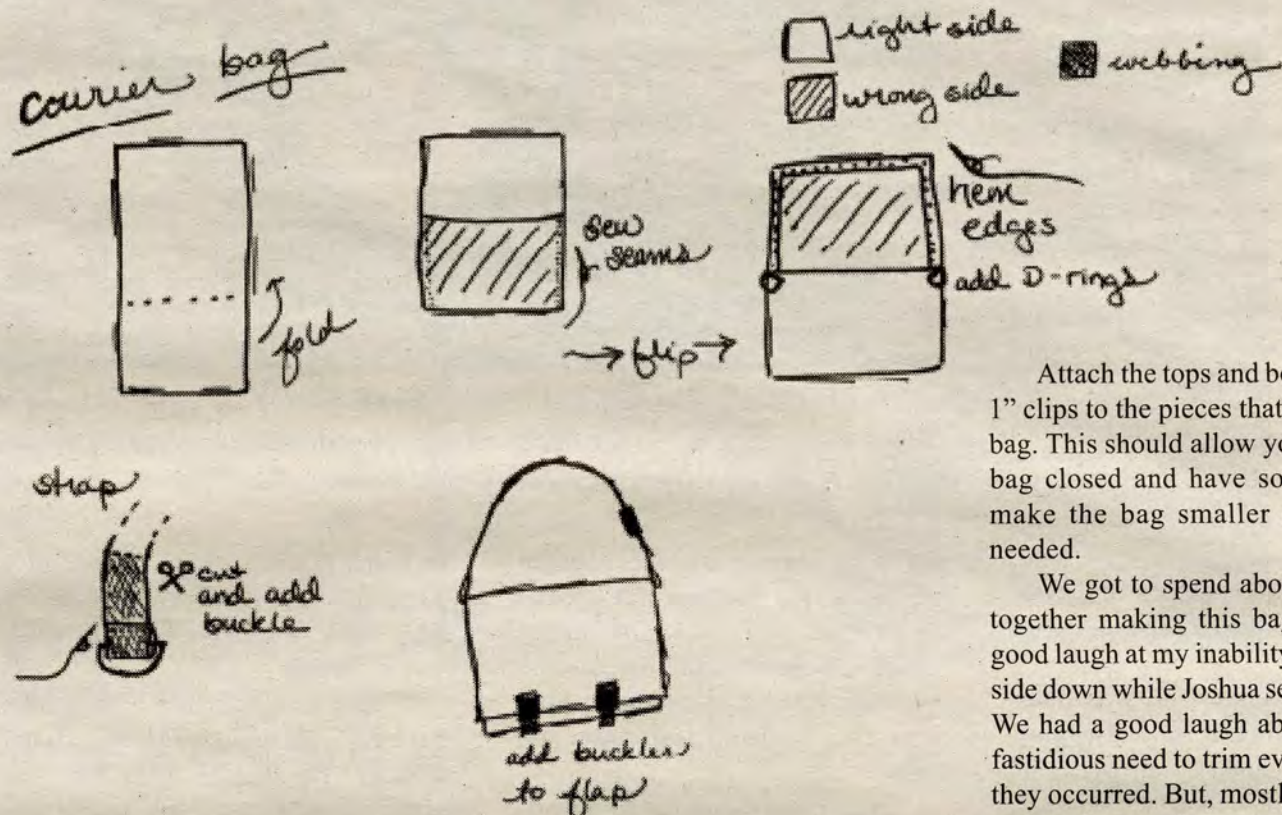 courier bag
right side
wrong side
webbing
fold
sew
seams
→ flip →
hem
edges
add D-rings
strap
cut
and add
buckle
add buckles
to flap
Attach the tops and
1” clips to the pieces that
bag. This should allow
bag closed and have
make the bag smaller
needed.
We got to spend
together making this
good laugh at my inability
side down while Joshua
We had a good laugh
fastidious need to trim
they occurred. But,